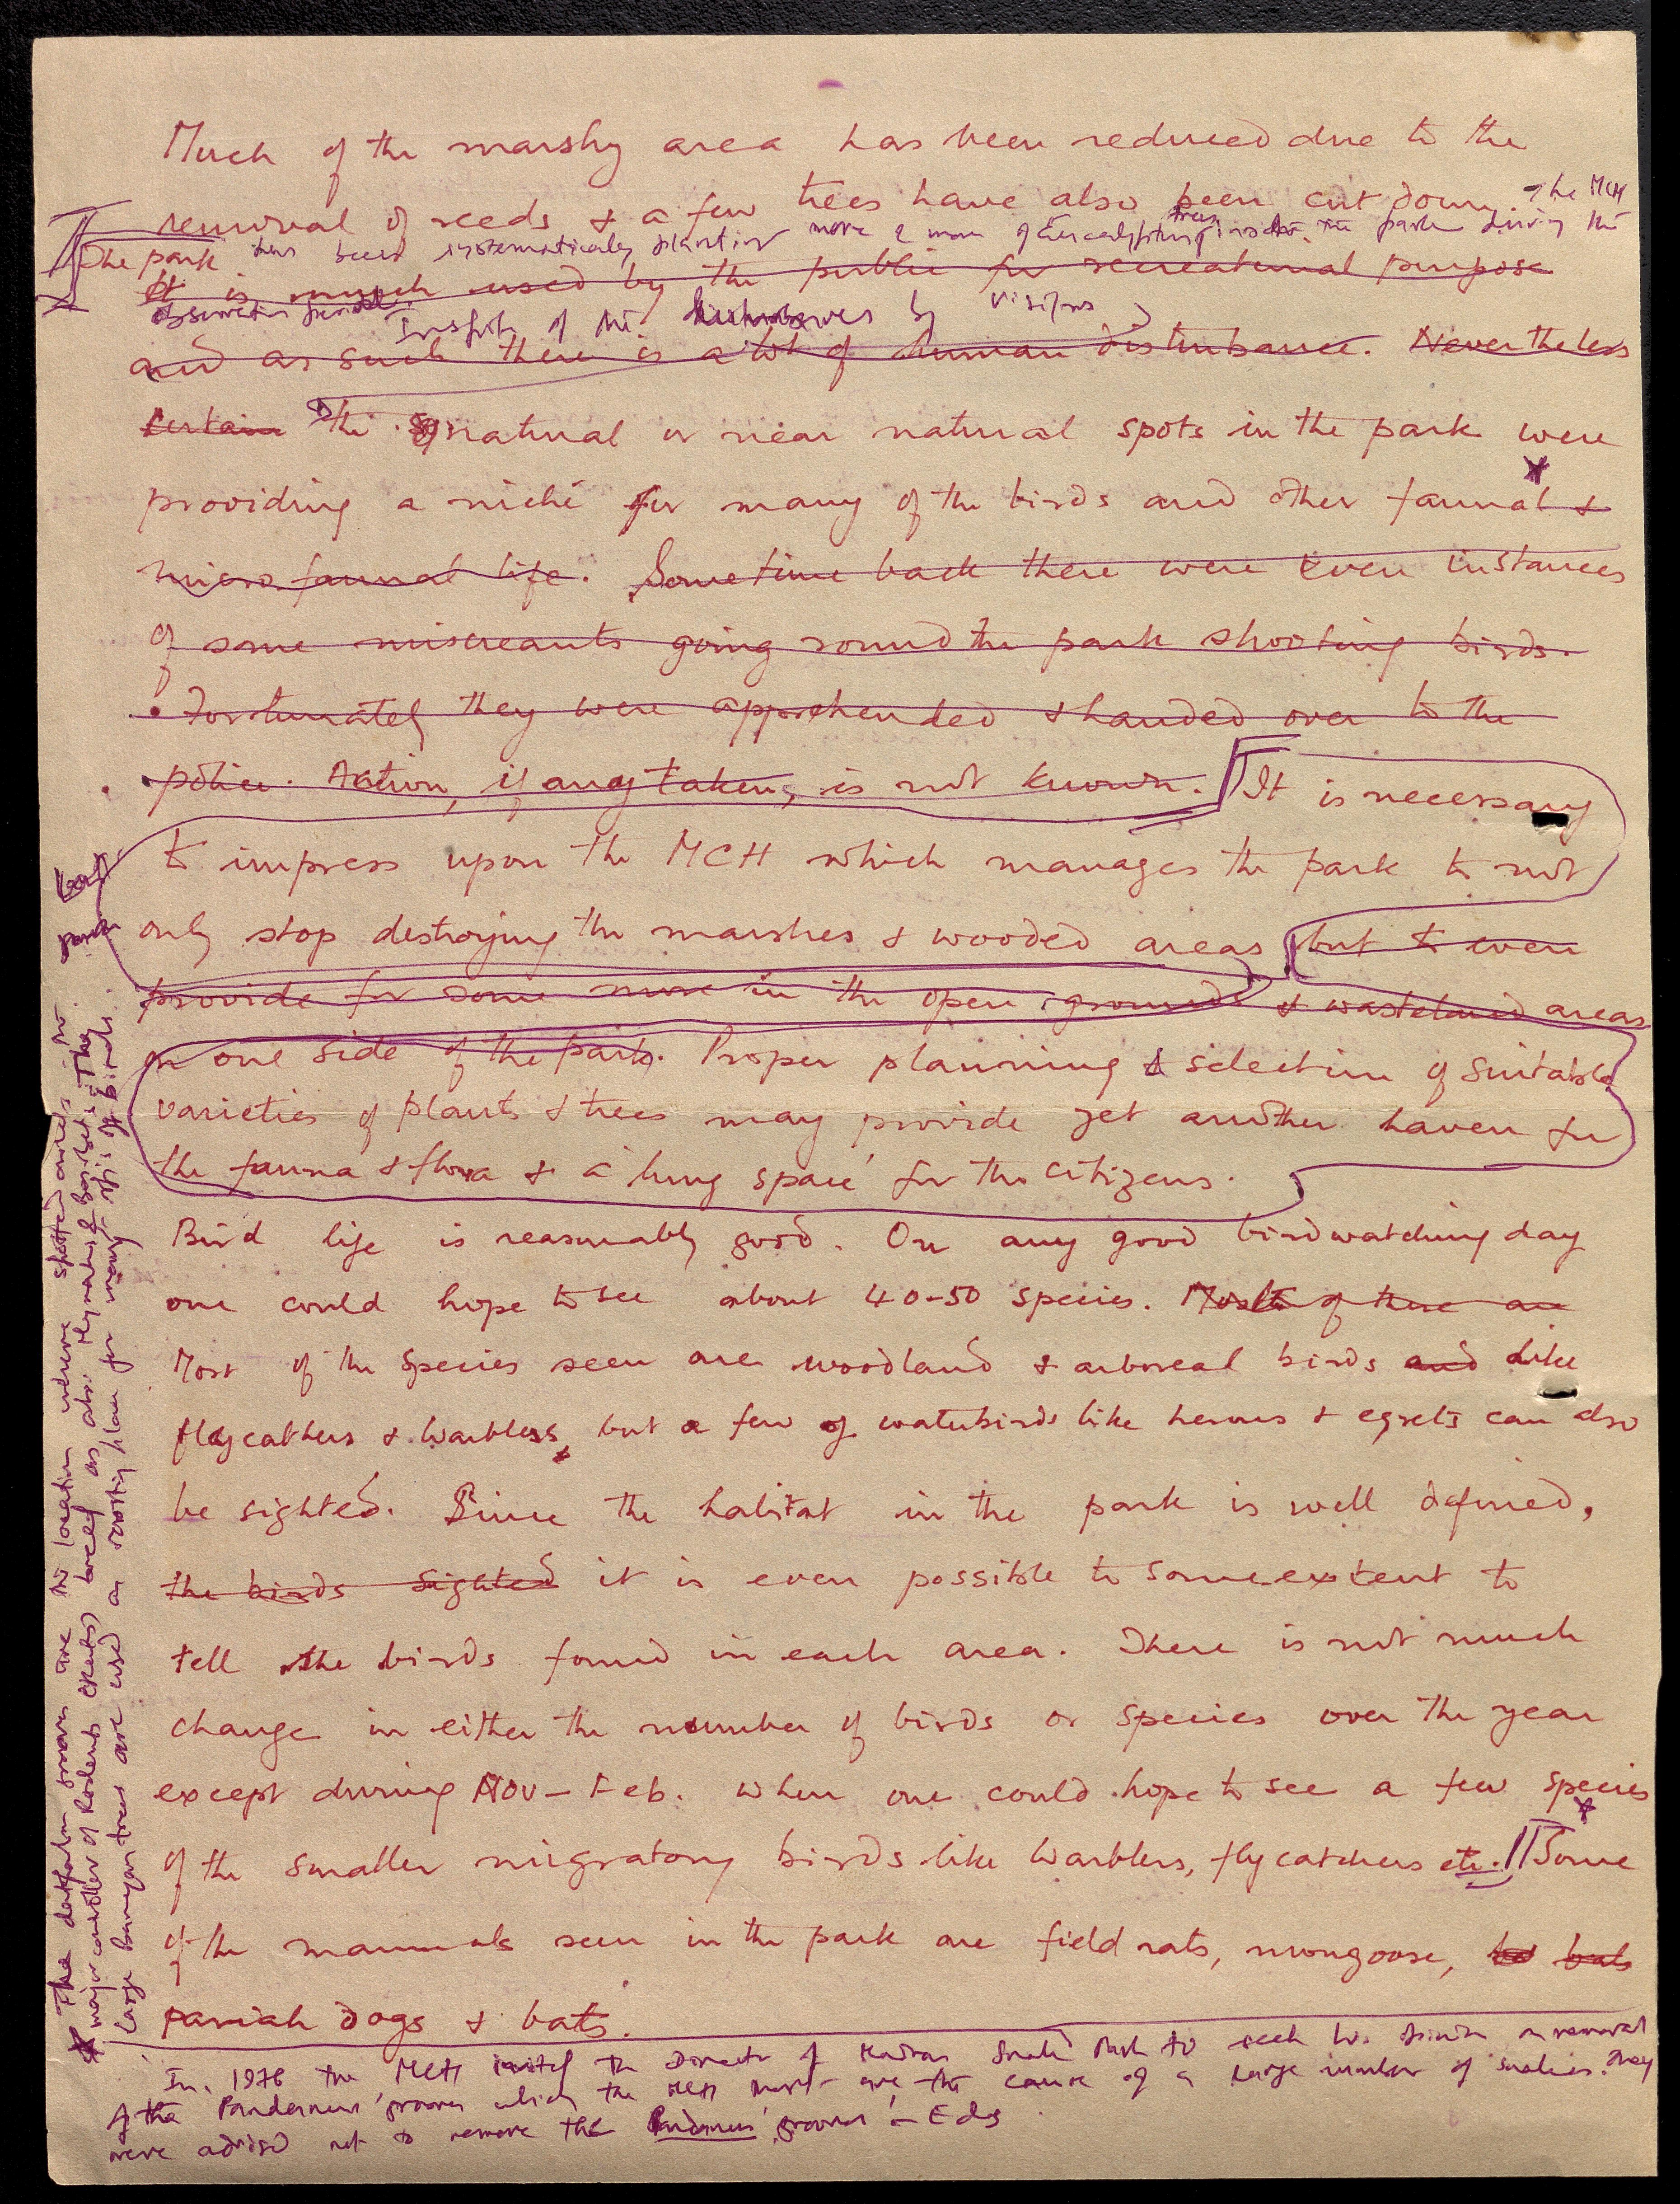 Much of the marshy area has been reduced due to the
removal of reeds & a few trees have also been cut down. The MCH
has been systematically planting more & more of Eucalyptus trees inside the park during the
The park
It is much used by the public for recreational purpose
observation period. Inspite of the disturbances by visitors
and as such there is a lot of human disturbance. Nevertheless
certain the natural or near natural spots in the park were
providing a niche for many of the birds and other faunal &
micro faunal life. Sometime back there were even instances
of some miscreants going round the park shooting birds.
Fortunately they were apprehended & handed over to the
police. Action, if any taken, is not known. It is necessary
to impress upon the MCH which manages the park to not
only stop destroying the marshes & wooded areas but to even
provide for some more in the open grounds & wasteland areas
on one side of the park. Proper planning & selection of suitable
varieties of plants & trees may provide yet another haven for
the fauna & flora & a 'lung space' for the citizens.
Bird life is reasonably good. On any good birdwatching day
one could hope to see about 40-50 species. Most of these are
Most of the species seen are woodland & arboreal birds and like
flycatchers & warblers, but a few of waterbirds like herons & egrets can also
be sighted. Since the habitat in the park is well defined,
the birds sighted it is even possible to some extent to
tell the birds found in each area. There is not much
change in either the number of birds or species over the year
except during Nov - Feb. when one could hope to see a few species
of the smaller migratory birds like warblers, flycatchers etc. Some
of the mammals seen in the park are field rats, mongoose, bats
pariah dogs & bats.
In 1976 the MCH invited the Director of Madras Snake Park to seek his on removal
of the Pandanus groves which the MCH are the cause of a large number of snakes. They
were advised not to remove the Pandanus groves - Eds
* The groves are the location where spotted owlets, the
major controller of Rodents breed as also The
large Banyan trees are used as roosting place for many of birds.